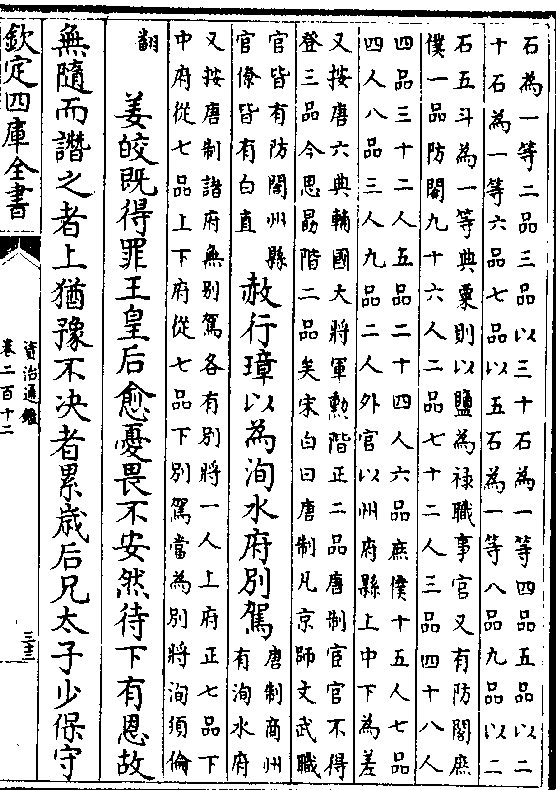 石為一等二品三品以三十石為一等四品五品以二
十石為一等六品七品以五石為一等八品九品以二
石五斗為一等典粟則以鹽為祿職事官又有防閤庶
僕一品防閤九十六人二品七十二人三品四十八人
四品三十二人五品二十四人六品庶僕十五人七品
四人八品三人九品二人外官以州府縣上中下為差
又按唐六典輔國大將軍勲階正二品唐制宦官不得
登三品今思勗階二品矣宋白曰唐制凡京師文武職
官皆有防閤州縣
官僚皆有白直
赦行璋以為洵水府別駕
唐制商州
有洵水府
又按唐制諸府無別駕各有別將一人上府正七品下
中府從七品上下府從七品下別駕當為別將洵須倫
翻
姜皎既得罪王皇后愈憂畏不安然待下有恩故
無隨而譖之者上猶豫不决者累歲后兄太子少保守
欽定四庫全書
資治通鑑
卷二百十二
三十三